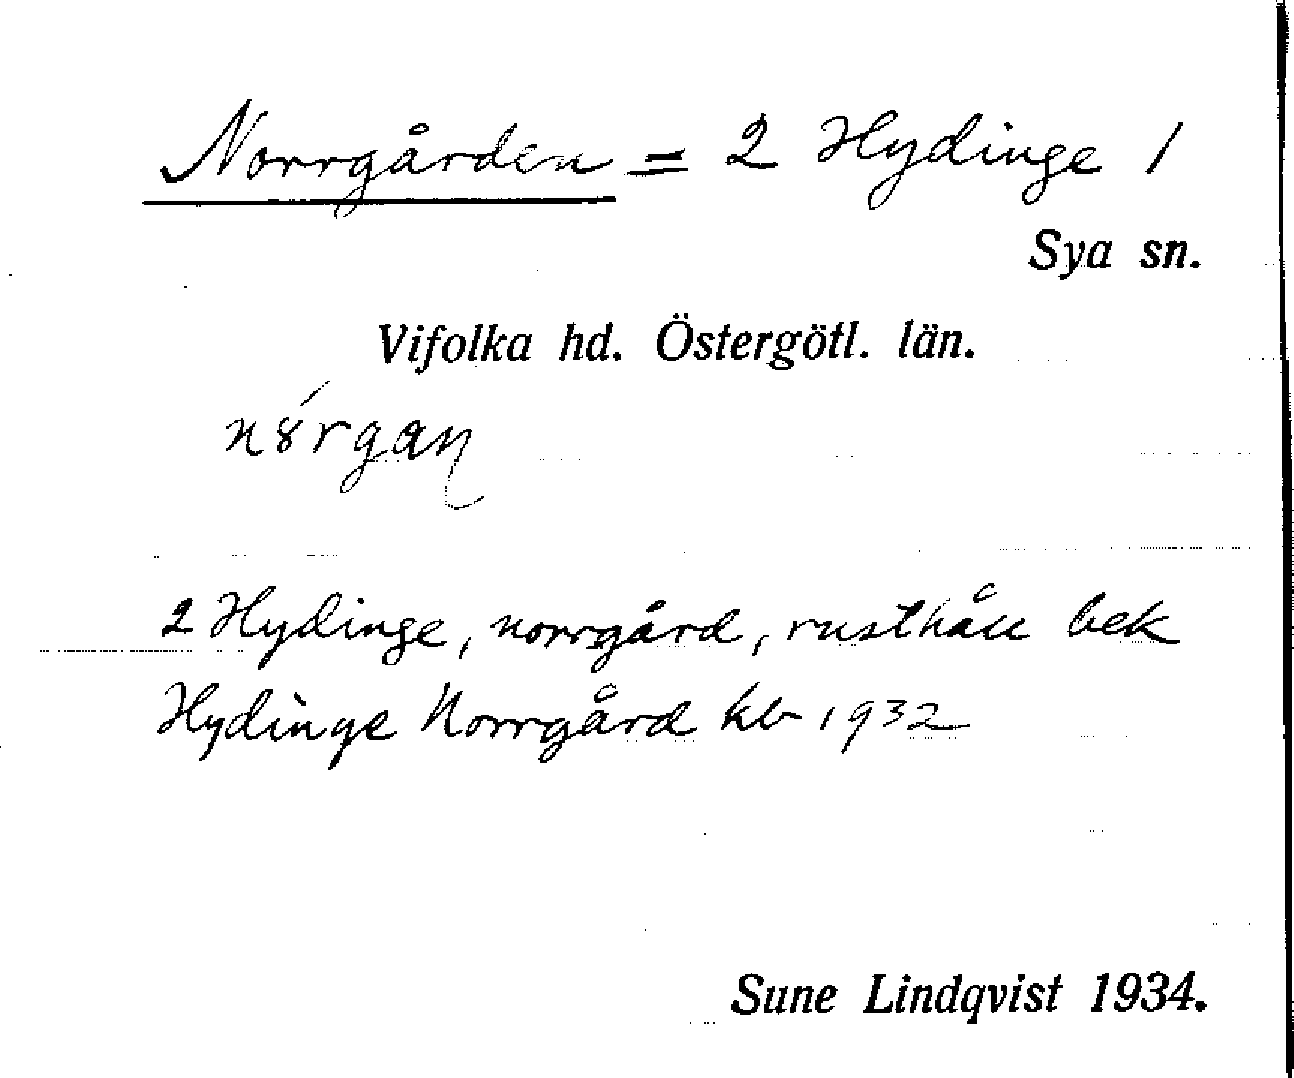 Norrgården = 2 Hydinge 1
Sya sn.
Vifolka hd. Östergötl. län.
n8́rgaɳ
2 Hydinge, norrgård, rusthåll bek
Hydinge Norrgård kb 1932
Sune Lindqvist 1934.